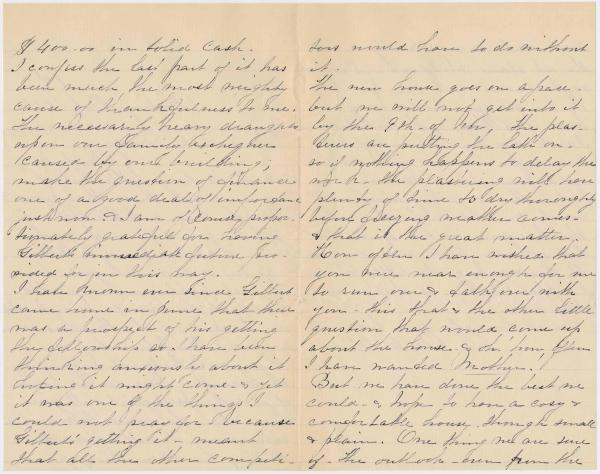 $400.00 in solid cash.
I confess the last part of it has
been much the most weighty
cause of thankfulness to me.
The necessarily heavy draughts
upon our family exchequer
caused by our building,
make the question of finance
one of a good deal of importance
just now & I am of course propor-
tionately grateful for having
Gilbert's immediate future pro-
vided for in this way.
I have known ever since Gilbert
came home in June that there
was a prospect of his getting
the fellowship so I have been
thinking anxiously about it
hoping it might come - & yet
it was one of the things I
could not pray for - because
Gilbert's getting it - meant
that all the other competi-
tors would have to do without
it.
The new house goes on apace -
but we will not get into it
by the 9th of Nov, The plas-
terers are putting the lath on -
so if nothing happens to delay the
work - the plastering will have
plenty of time to dry thoroughly
before freezing weather comes -
& that is the great matter.
How often I have wished that
you were near enough for me
to run over & talk over with
you - this that & the other little
question that would come up
about the house - & oh how often
I have wanted Mother!
But we have done the best we
could - & hope to have a cosy &
comfortable house, though small
& plain. One thing we are sure
of - the outlook even from the